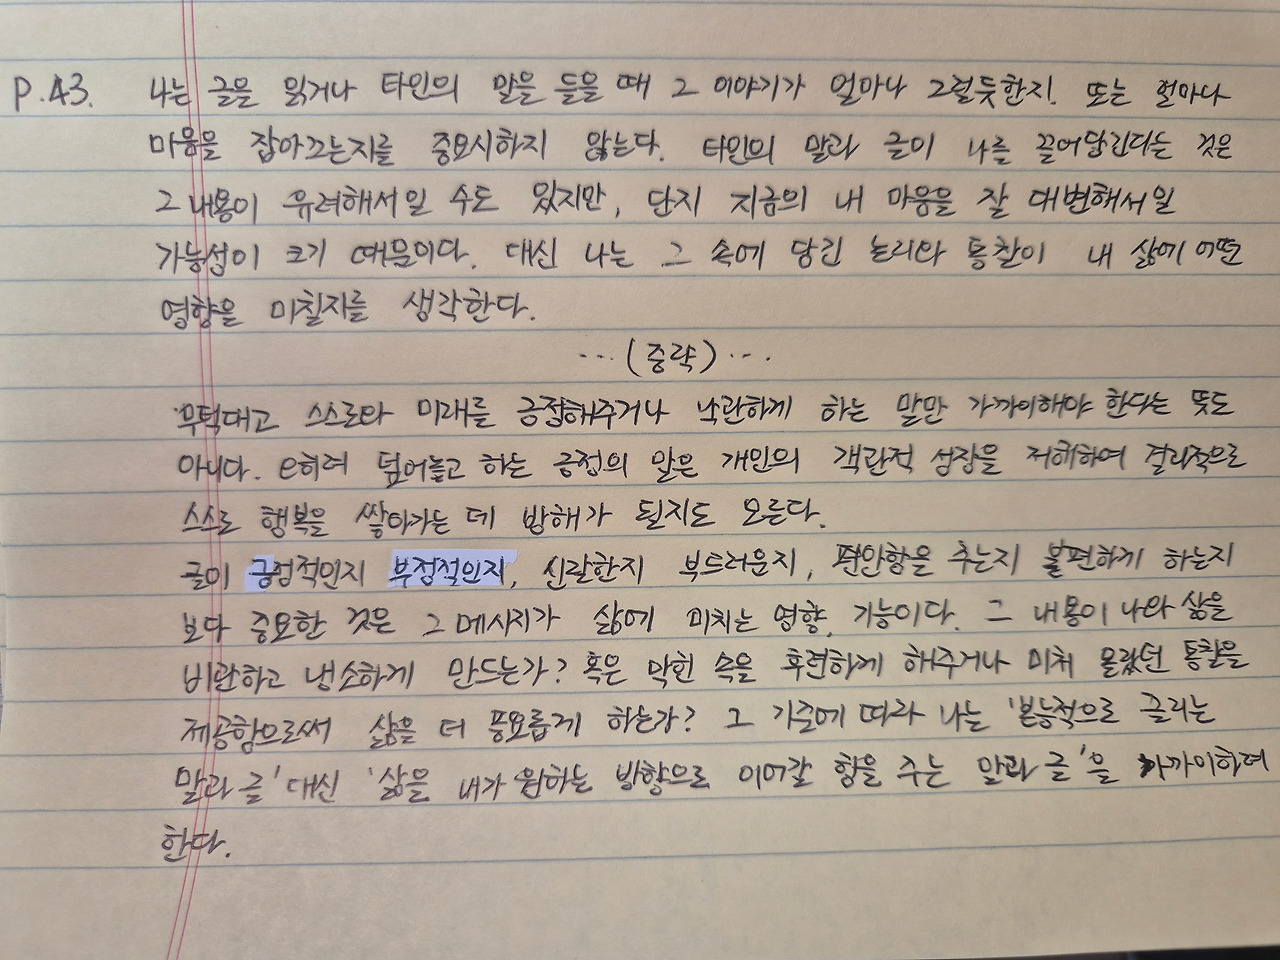 P.43. 나는 글을 읽거나 타인의 말을 들을 때 그 이야기가 얼마나 그럴듯한지. 또는 얼마나
마음을 잡아끄는지를 중요시하지 않는다. 타인의 말과 글이 나를 끌어당긴다는 것은
그 내용이 유려해서일 수도 있지만, 단지 지금의 내 마음을 잘 대변해서일
가능성이 크기 때문이다. 대신 나는 그 속에 담긴 논리와 통찰이 내 삶에 어떤
영향을 미칠지를 생각한다.
... (중략) ...
무턱대고 스스로와 미래를 긍정해주거나 낙관하게 하는 말만 가까이해야 한다는 뜻도
아니다. 오히려 덮어놓고 하는 긍정의 말은 개인의 객관적 성장을 저해하여 결과적으로
스스로 행복을 쌓아가는 데 방해가 될지도 모른다.
글이 긍정적인지 부정적인지, 신랄한지 부드러운지, 편안함을 주는지 불편하게 하는지
보다 중요한 것은 그 메시지가 삶에 미치는 영향, 기능이다. 그 내용이 나와 삶을
비관하고 냉소하게 만드는가? 혹은 막힌 속을 후련하게 해주거나 미처 몰랐던 통찰을
제공함으로써 삶을 더 풍요롭게 하는가? 그 기준에 따라 나는 '본능적으로 끌리는
말과 글' 대신 '삶을 내가 원하는 방향으로 이어갈 힘을 주는 말과 글'을 가까이하려
한다.